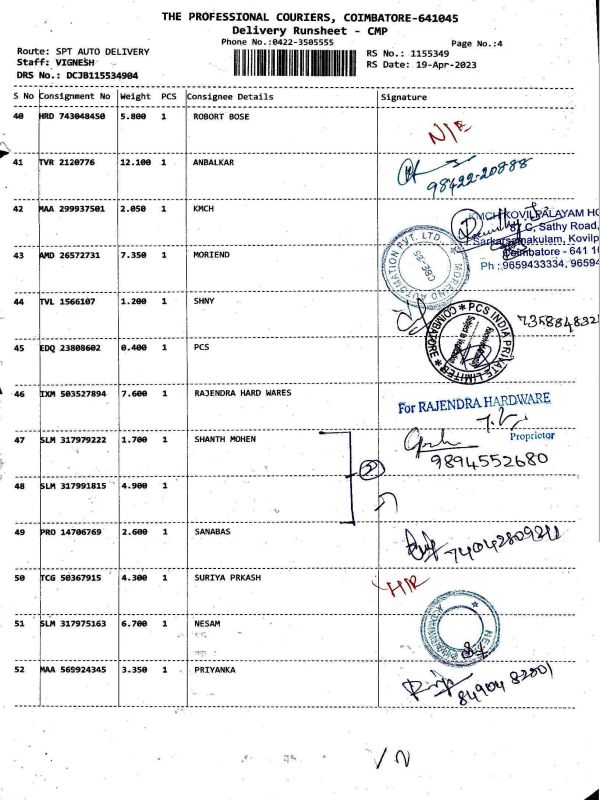 THE PROFESSIONAL COURIERS, COIMBATORE-641045
Delivery Runsheet - CMP
Phone No.:0422-3505555
Page No.:4
Route: SPT AUTO DELIVERY
RS No.: 1155349
Staff: VIGNESH
RS Date: 19-Apr-2023
DRS No.: DCJB115534904
S No Consignment No Weight PCS Consignee Details Signature
40 HRD 743048450 5.800 1 ROBORT BOSE
N/R
41 TVR 2120776 12.100 1 ANBALKAR
98422-20888
42 MAA 299937501 2.050 1 KMCH
KMCH KOVILPALAYAM HO
87 C, Sathy Road,
Sarkarsamakulam, Kovilp
Coimbatore - 641 10
Ph : 9659433334, 96594
43 AMD 26572731 7.350 1 MORIEND
AUTOMATION PVT. LTD.
CBE-35
44 TVL 1566107 1.200 1 SHNY
PCS INDIA PRIVATE LIMITED
COIMBATORE
45 EDQ 23808602 0.400 1 PCS
46 IXM 503527894 7.600 1 RAJENDRA HARD WARES
For RAJENDRA HARDWARE
Proprietor
47 SLM 317979222 1.700 1 SHANTH MOHEN
9894552680
2
48 SLM 317991815 4.900 1
49 PRO 14706769 2.600 1 SANABAS
50 TCG 50367915 4.300 1 SURIYA PRKASH
51 SLM 317975163 6.700 1 NESAM
52 MAA 569924345 3.350 1 PRIYANKA